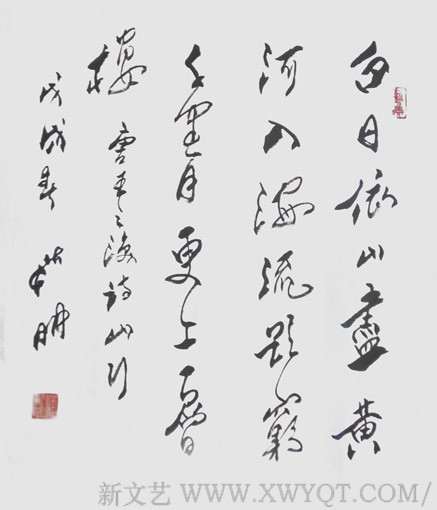 白日依山盡黄
河入海流欲窮
千里目更上一層
樓 唐王之涣诗山行
戊戌春 明
新文艺 WWW.XWYQT.COM/